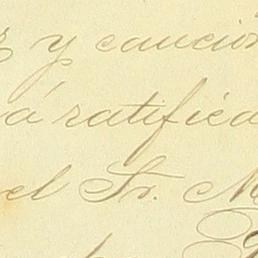 y caución
á ratifica
el Sr. M